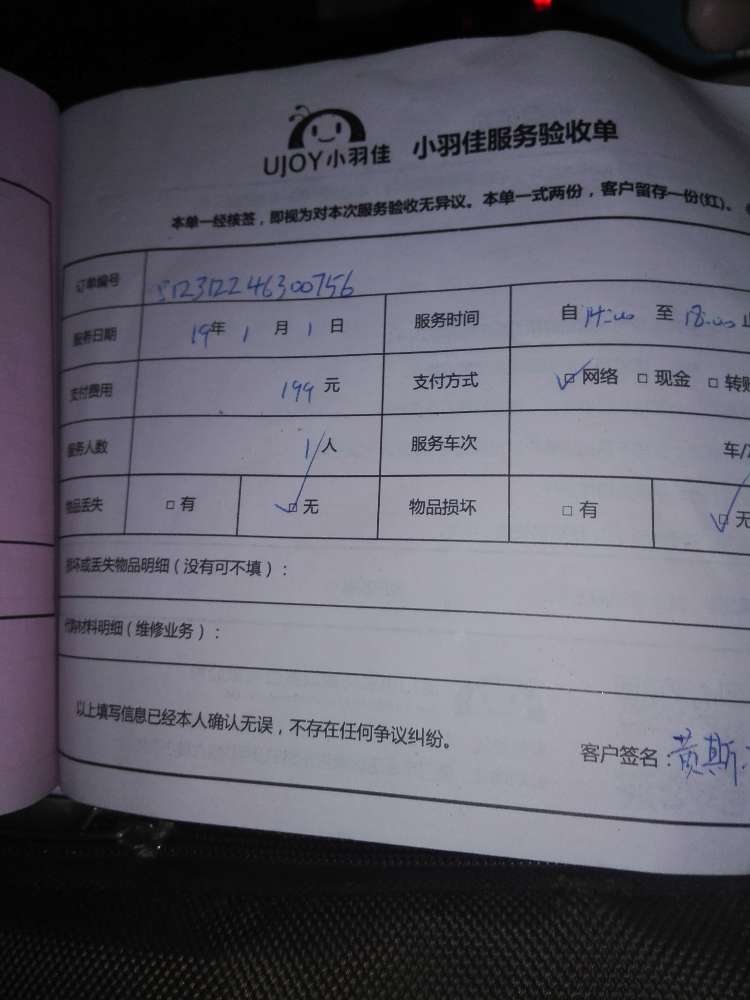 UJOY小羽佳 小羽佳服务验收单
本单一经核签，即视为对本次服务验收无异议。本单一式两份，客户留存一份(红)、
订单编号 S12312246300756
服务日期 19年 1 月 1 日 服务时间 自 14:00 至 18:00 止
支付费用 199 元 支付方式 □ 网络 □ 现金 □ 转账
服务人数 1 人 服务车次 车/
物品丢失 □ 有 □ 无 物品损坏 □ 有 □ 无
损坏或丢失物品明细（没有可不填）：
代购材料明细（维修业务）：
以上填写信息已经本人确认无误，不存在任何争议纠纷。
客户签名：黄斯